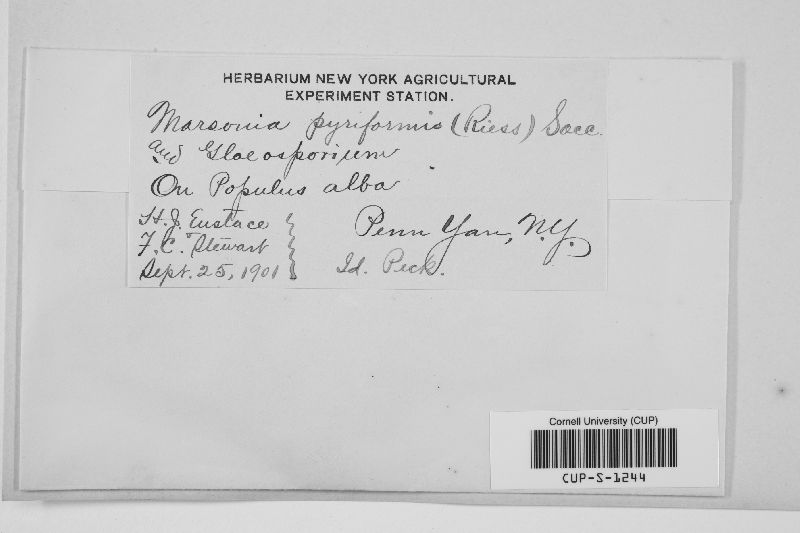 HERBARIUM NEW YORK AGRICULTURAL
EXPERIMENT STATION.
Marsonia pyriformis (Riess) Sacc.
and Gloeosporium
On Populus alba
H.J. Eustace
F.C. Stewart
Sept. 25, 1901
Penn Yan, N.Y.
Id. Peck.
Cornell University (CUP)
CUP-S-1244